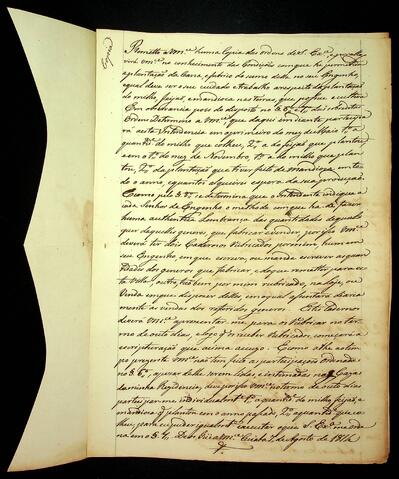 Copia
Remetto a Vm.ce huma Copia das ordens de S. Ex.ª para
vir Vm.ce no conhecimento das Condições com que he permettida
a plantação da Cana, e fabrico do sumo della no seu Engenho,
equal deve ser o seu cuidado e trabalho a respeito da plantação
do milho, feijaõ, e mandioca nas terras, que possue, e cultiva.
Em observancia pois do disposto no §
Ordem Determino a Vm.ce, que daqui em diante participe
a esta Intendencia em o primeiro do mez de Maio 1.º a
quantid.e de milho que colheu, 2.º a de feijaõ que plantou
em o 1.º do mez de Novembro, 1.º a de milho que plan-
tou, 2.º da plantação que tiver feito de mandioca em to-
do o anno, e quantos alqueires espera da sua producçaõ.
E como pelo § determina que o Intendente indique a
cada Senhor de Engenho o methodo com que ha de fazer
huma authentica Lembrança das quantidades de qual-
quer daquelles generos, que fabricar e vender, por isso Vm.ce
deverá ter dois Cadernos Rubricados por mim, hum em
seu Engenho, em que escreva, ou mande escrever a quan-
tidade dos generos que fabricar, e do que remetter para es-
ta Villa, outro, tambem por mim rubricado, na loje, ou
Venda em que dispuser delles, em o qual assentará diaria-
mente as vendas dos referidos generos. Estes Cadernos
deverá Vm.ce apresentar-me, para os Rubricar no ter-
mo de oito dias, e logo q' receber Rubricados, começará a
escripturaçaõ que acima accuso. E como athe ao tem-
po prezente Vm.ce naõ tem feito as participações ordenadas
no § 6.º, apezar de lhe serem lidas, e intimadas na Caza
da minha Rezidencia, deve por isso Vm.ce no termo de oito dias
participar-me individualm.te 1.º a quantid.e de milho, feijaõ, e
mandioca q' plantou em o anno passado, 2.º a quantid.e que co-
lheu, para eu poder igualm.te executar o que S. Ex.ª me orde-
na em o § 7. Deos G.e a Vm.ce Cuiabá 7 de Agosto de 1814